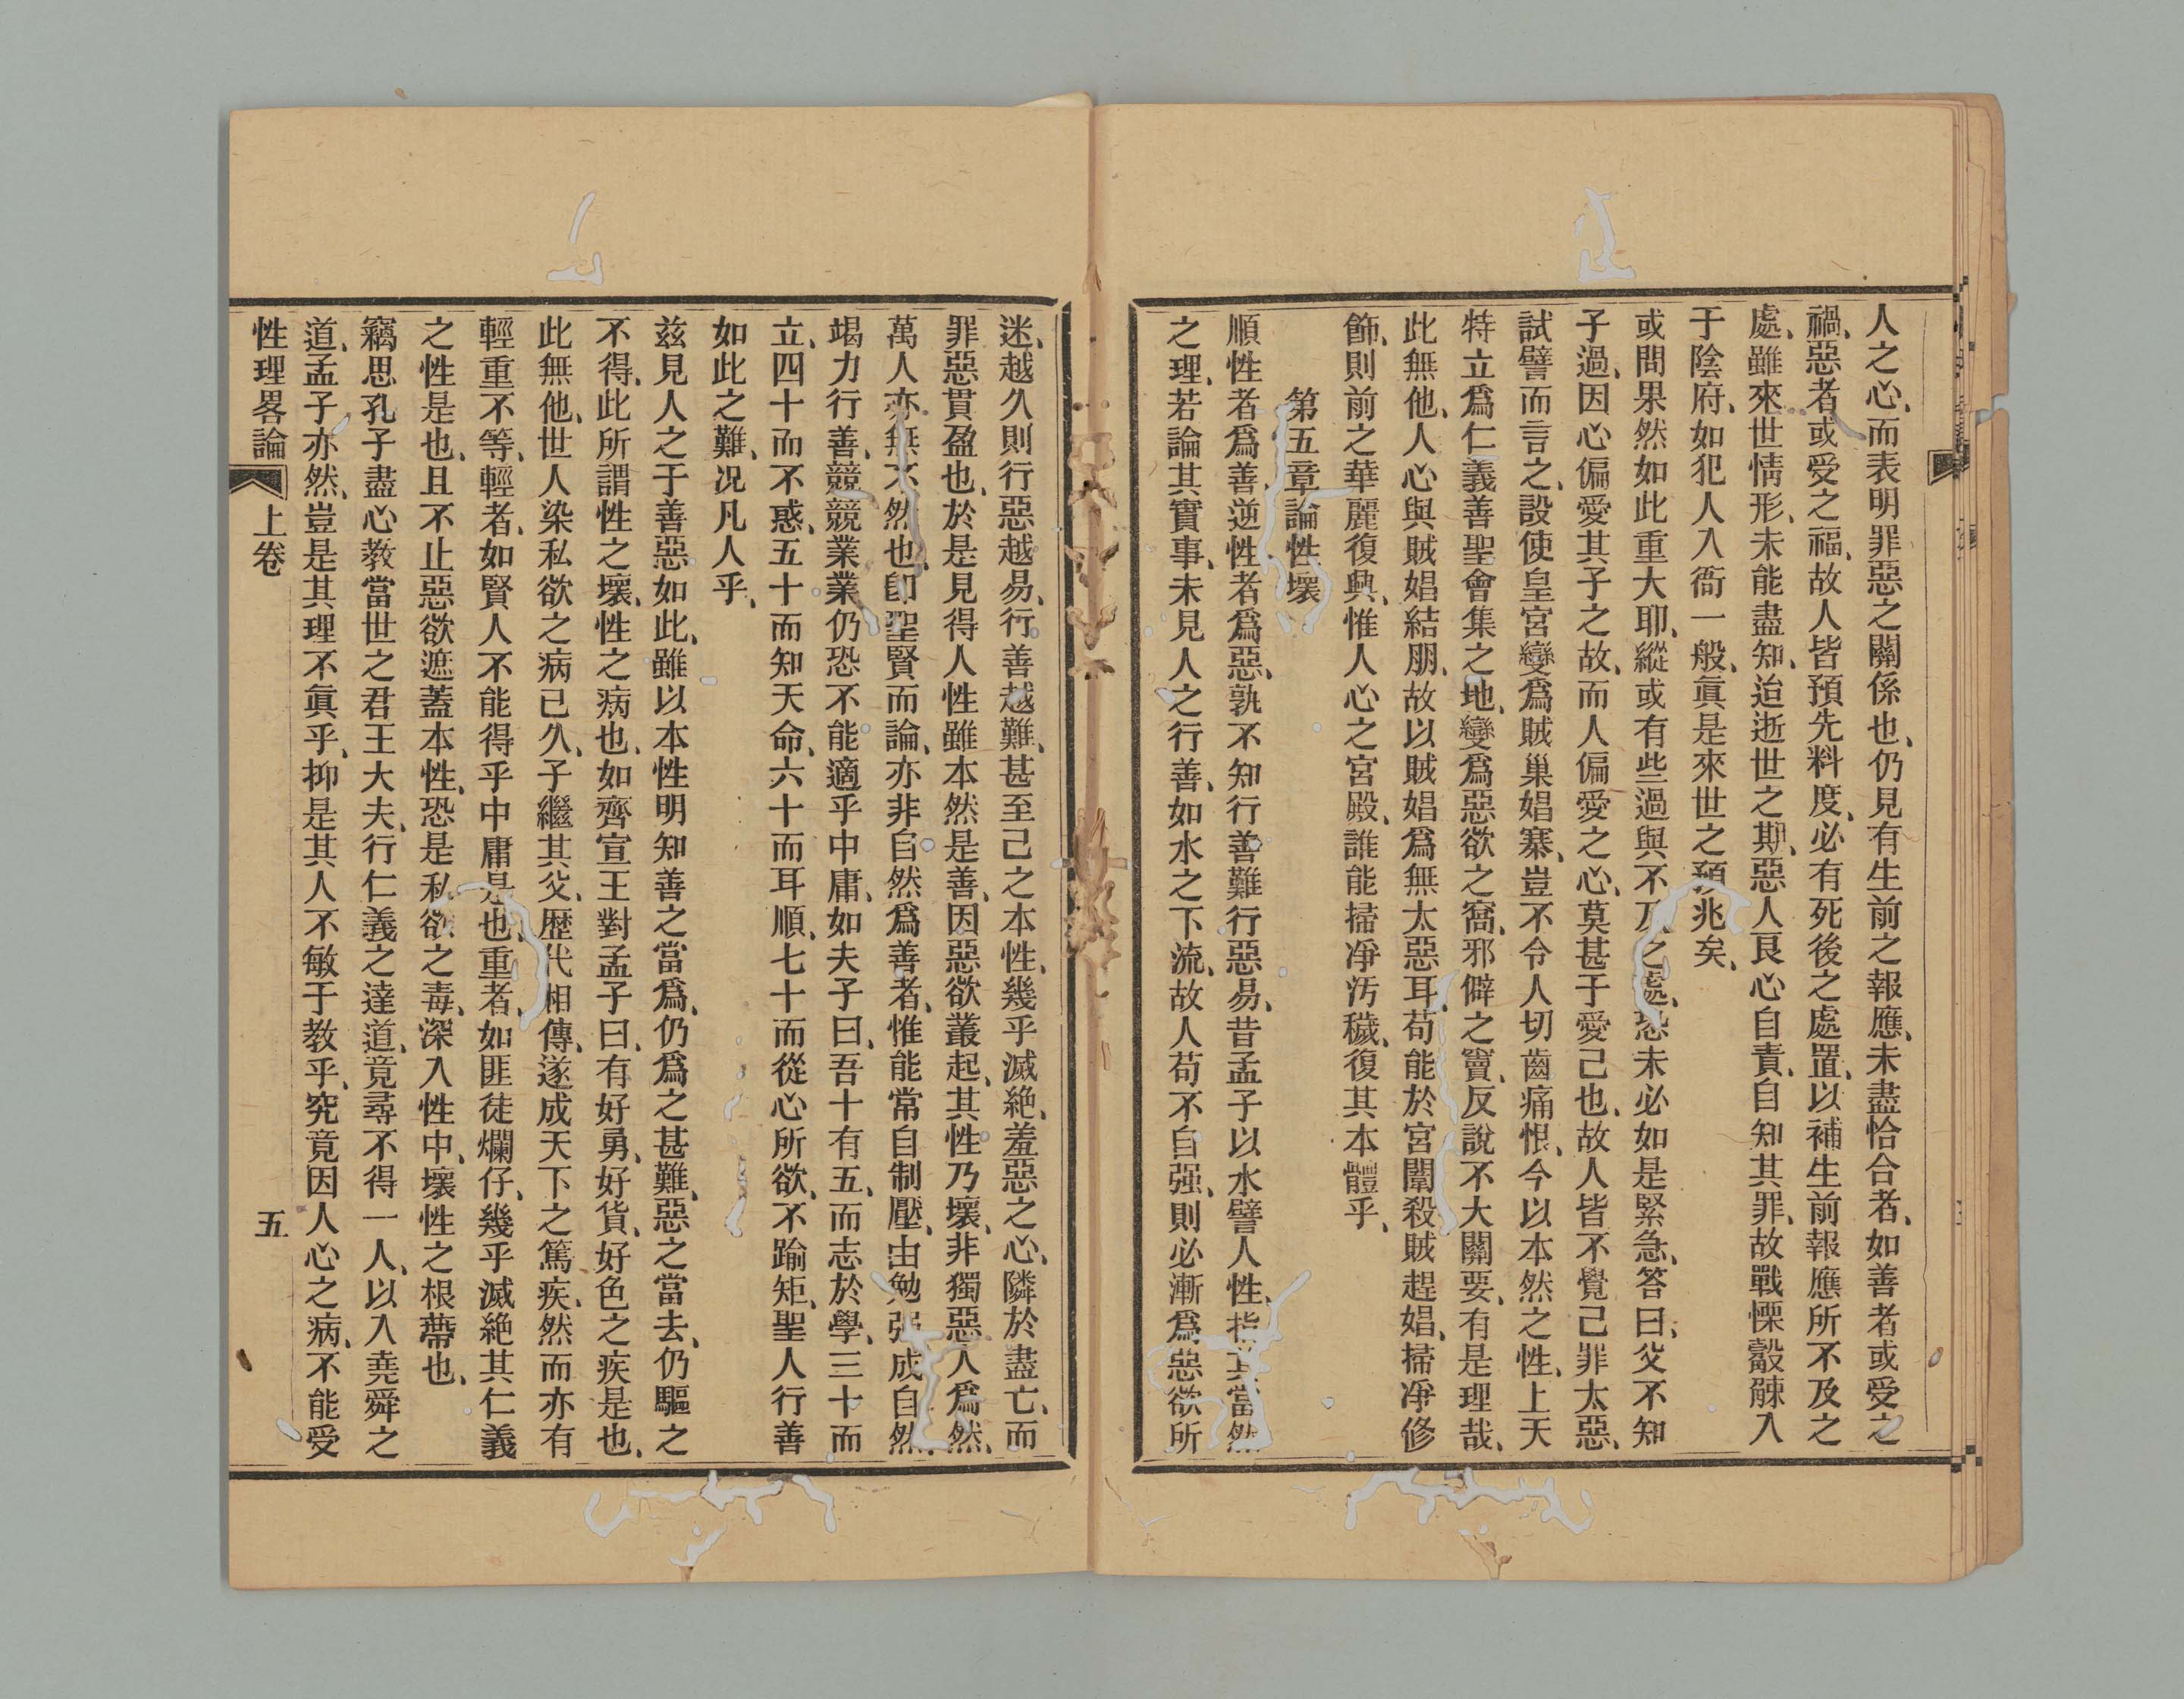 人之心、而表明罪惡之關係也、仍見有生前之報應、未盡恰合者、如善者或受之
禍、惡者或受之福、故人皆預先料度、必有死後之處置、以補生前報應所不及之
處、雖來世情形、未能盡知、迨逝世之期、惡人良心自責、自知其罪、故戰慄觳觫入
于陰府、如犯人入衙一般、眞是來世之預兆矣、
或問果然如此重大耶、縱或有些過與不及之處、恐未必如是緊急、答曰、父不知
子過、因心偏愛其子之故、而人偏愛之心、莫甚于愛己也、故人皆不覺己罪太惡、
試譬而言之、設使皇宮變爲賊巢娼寨、豈不令人切齒痛恨、今以本然之性、上天
特立爲仁義善聖會集之地、變爲惡欲之窩、邪僻之竇、反說不大關要、有是理哉、
此無他、人心與賊娼結朋、故以賊娼爲無太惡耳、苟能於宮闈殺賊趕娼、掃淨修
飾、則前之華麗復興、惟人心之宮殿、誰能掃淨汚穢、復其本體乎、
第五章論性壞
順性者爲善、逆性者爲惡、孰不知行善難行惡易、昔孟子以水譬人性、指其當然
之理、若論其實事、未見人之行善、如水之下流、故人苟不自强、則必漸爲惡欲所
迷、越久則行惡越易、行善越難、甚至己之本性、幾乎滅絶、羞惡之心、隣於盡亡、而
罪惡貫盈也、於是見得人性雖本然是善、因惡欲叢起、其性乃壞、非獨惡人爲然、
萬人亦無不然也、卽聖賢而論、亦非自然爲善者、惟能常自制壓、由勉强成自然、
竭力行善、競競業業仍恐不能適乎中庸、如夫子曰、吾十有五、而志於學、三十而
立、四十而不惑、五十而知天命、六十而耳順、七十而從心所欲、不踰矩、聖人行善
如此之難、况凡人乎、
茲見人之于善惡如此、雖以本性明知善之當爲、仍爲之甚難、惡之當去、仍驅之
不得、此所謂性之壞、性之病也、如齊宣王對孟子曰、有好勇、好貨、好色之疾是也、
此無他、世人染私欲之病已久、子繼其父、歷代相傳、遂成天下之篤疾、然而亦有
輕重不等、輕者、如賢人不能得乎中庸是也、重者、如匪徒爛仔、幾乎滅絶其仁義
之性是也、且不止惡欲遮蓋本性、恐是私欲之毒、深入性中、壞性之根蒂也、
竊思孔子盡心教當世之君王大夫、行仁義之達道、竟尋不得一人、以入堯舜之
道、孟子亦然、豈是其理不眞乎、抑是其人不敏于教乎、究竟因人心之病、不能受
性理畧論 上卷 五